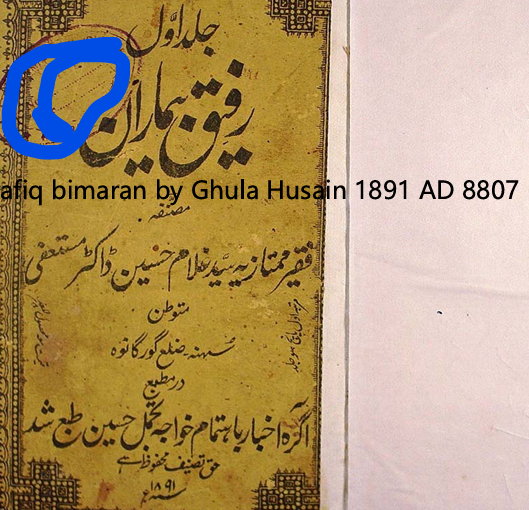 جلد اوّل
رفیق بیماران
afiq bimaran by Ghula Husain 1891 AD 8807
مصنفہ
فقیر ممتازیہ سیّد غلام حسنین ڈاکٹر مستعفی
متوطن
سہنہ ضلع گورگانوہ
در مطبع
آگرہ اخبار باہتمام خواجہ تجمل حسین طبع شد
حق تصنیف محفوظ ہے
سنہ ۱۸۹۱ء